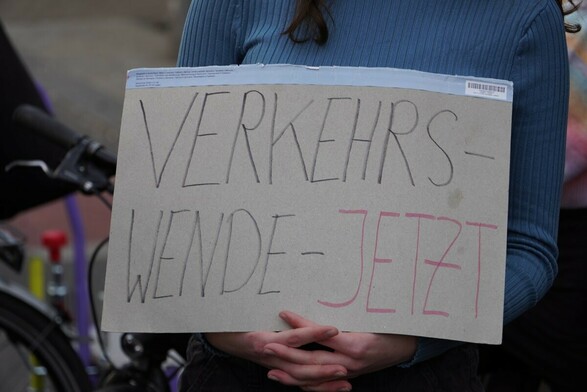 VERKEHRS-
WENDE-JETZT